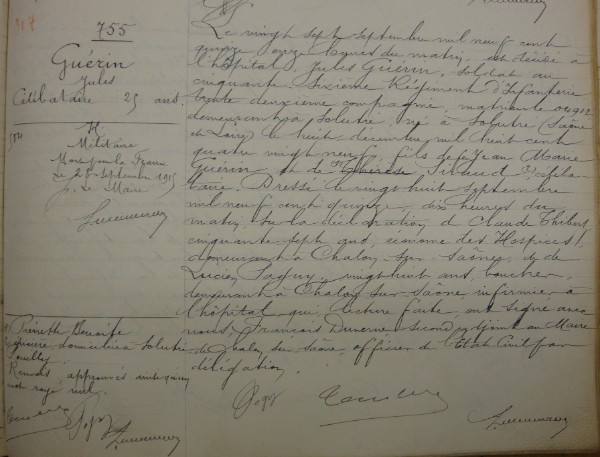 755
Guérin
Jules
Célibataire 25 ans.
Militaire
Mort pour la France
Le 27 Septembre 1915
p. Le Maire
Le vingt sept septembre mil neuf cent
quinze onze heures du matin, est décédé à
l'hôpital, Jules Guérin, soldat au
cinquante-sixième Régiment d'Infanterie
trente deuxième compagnie, matricule 04912
demeurant à Solutré, né à Solutré (Saône
et Loire) le huit décembre mil huit cent
quatre vingt neuf, fils de feu Jean Marie
Guérin, et de Thérèse
Dressé le vingt huit septembre
mil neuf cent quinze, dix heures du
matin, sur la déclaration de Claude Thibert,
cinquante-sept ans, économe des Hospices,
demeurant à Chalon-sur-Saône, et de
Lucien vingt huit ans, boucher,
demeurant à Chalon-sur-Saône, infirmier à
l'hôpital qui, lecture faite, ont signé avec
nous, François second adjoint au Maire
de Chalon-sur-Saône, officier de l'Etat Civil par
délégation.
domiciliée à Solutré
Pouilly
Renvois approuvés
mot rayé nul.